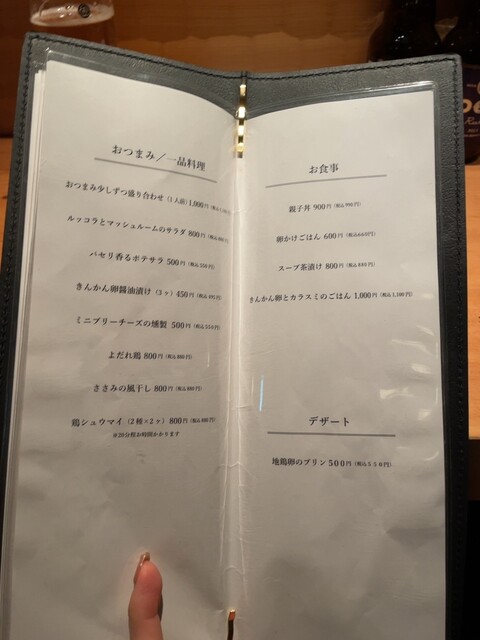 おつまみ／一品料理
おつまみ少しずつ盛り合わせ（1人前）1,000円
ルッコラとマッシュルームのサラダ 800円（税込880円）
パセリ香るポテサラ 500円（税込550円）
きんかん卵醤油漬け（3ヶ）450円（税込495円）
ミニブリーチーズの燻製 500円（税込550円）
よだれ鶏 800円（税込880円）
ささみの風干し 800円（税込880円）
鶏シュウマイ（2種×2ヶ）800円（税込880円）
※20分程お時間かかります
お食事
親子丼 900円（税込990円）
卵かけごはん 600円（税込660円）
スープ茶漬け 800円（税込880円）
きんかん卵とカラスミのごはん 1,000円（税込1,100円）
デザート
地鶏卵のプリン 500円（税込550円）